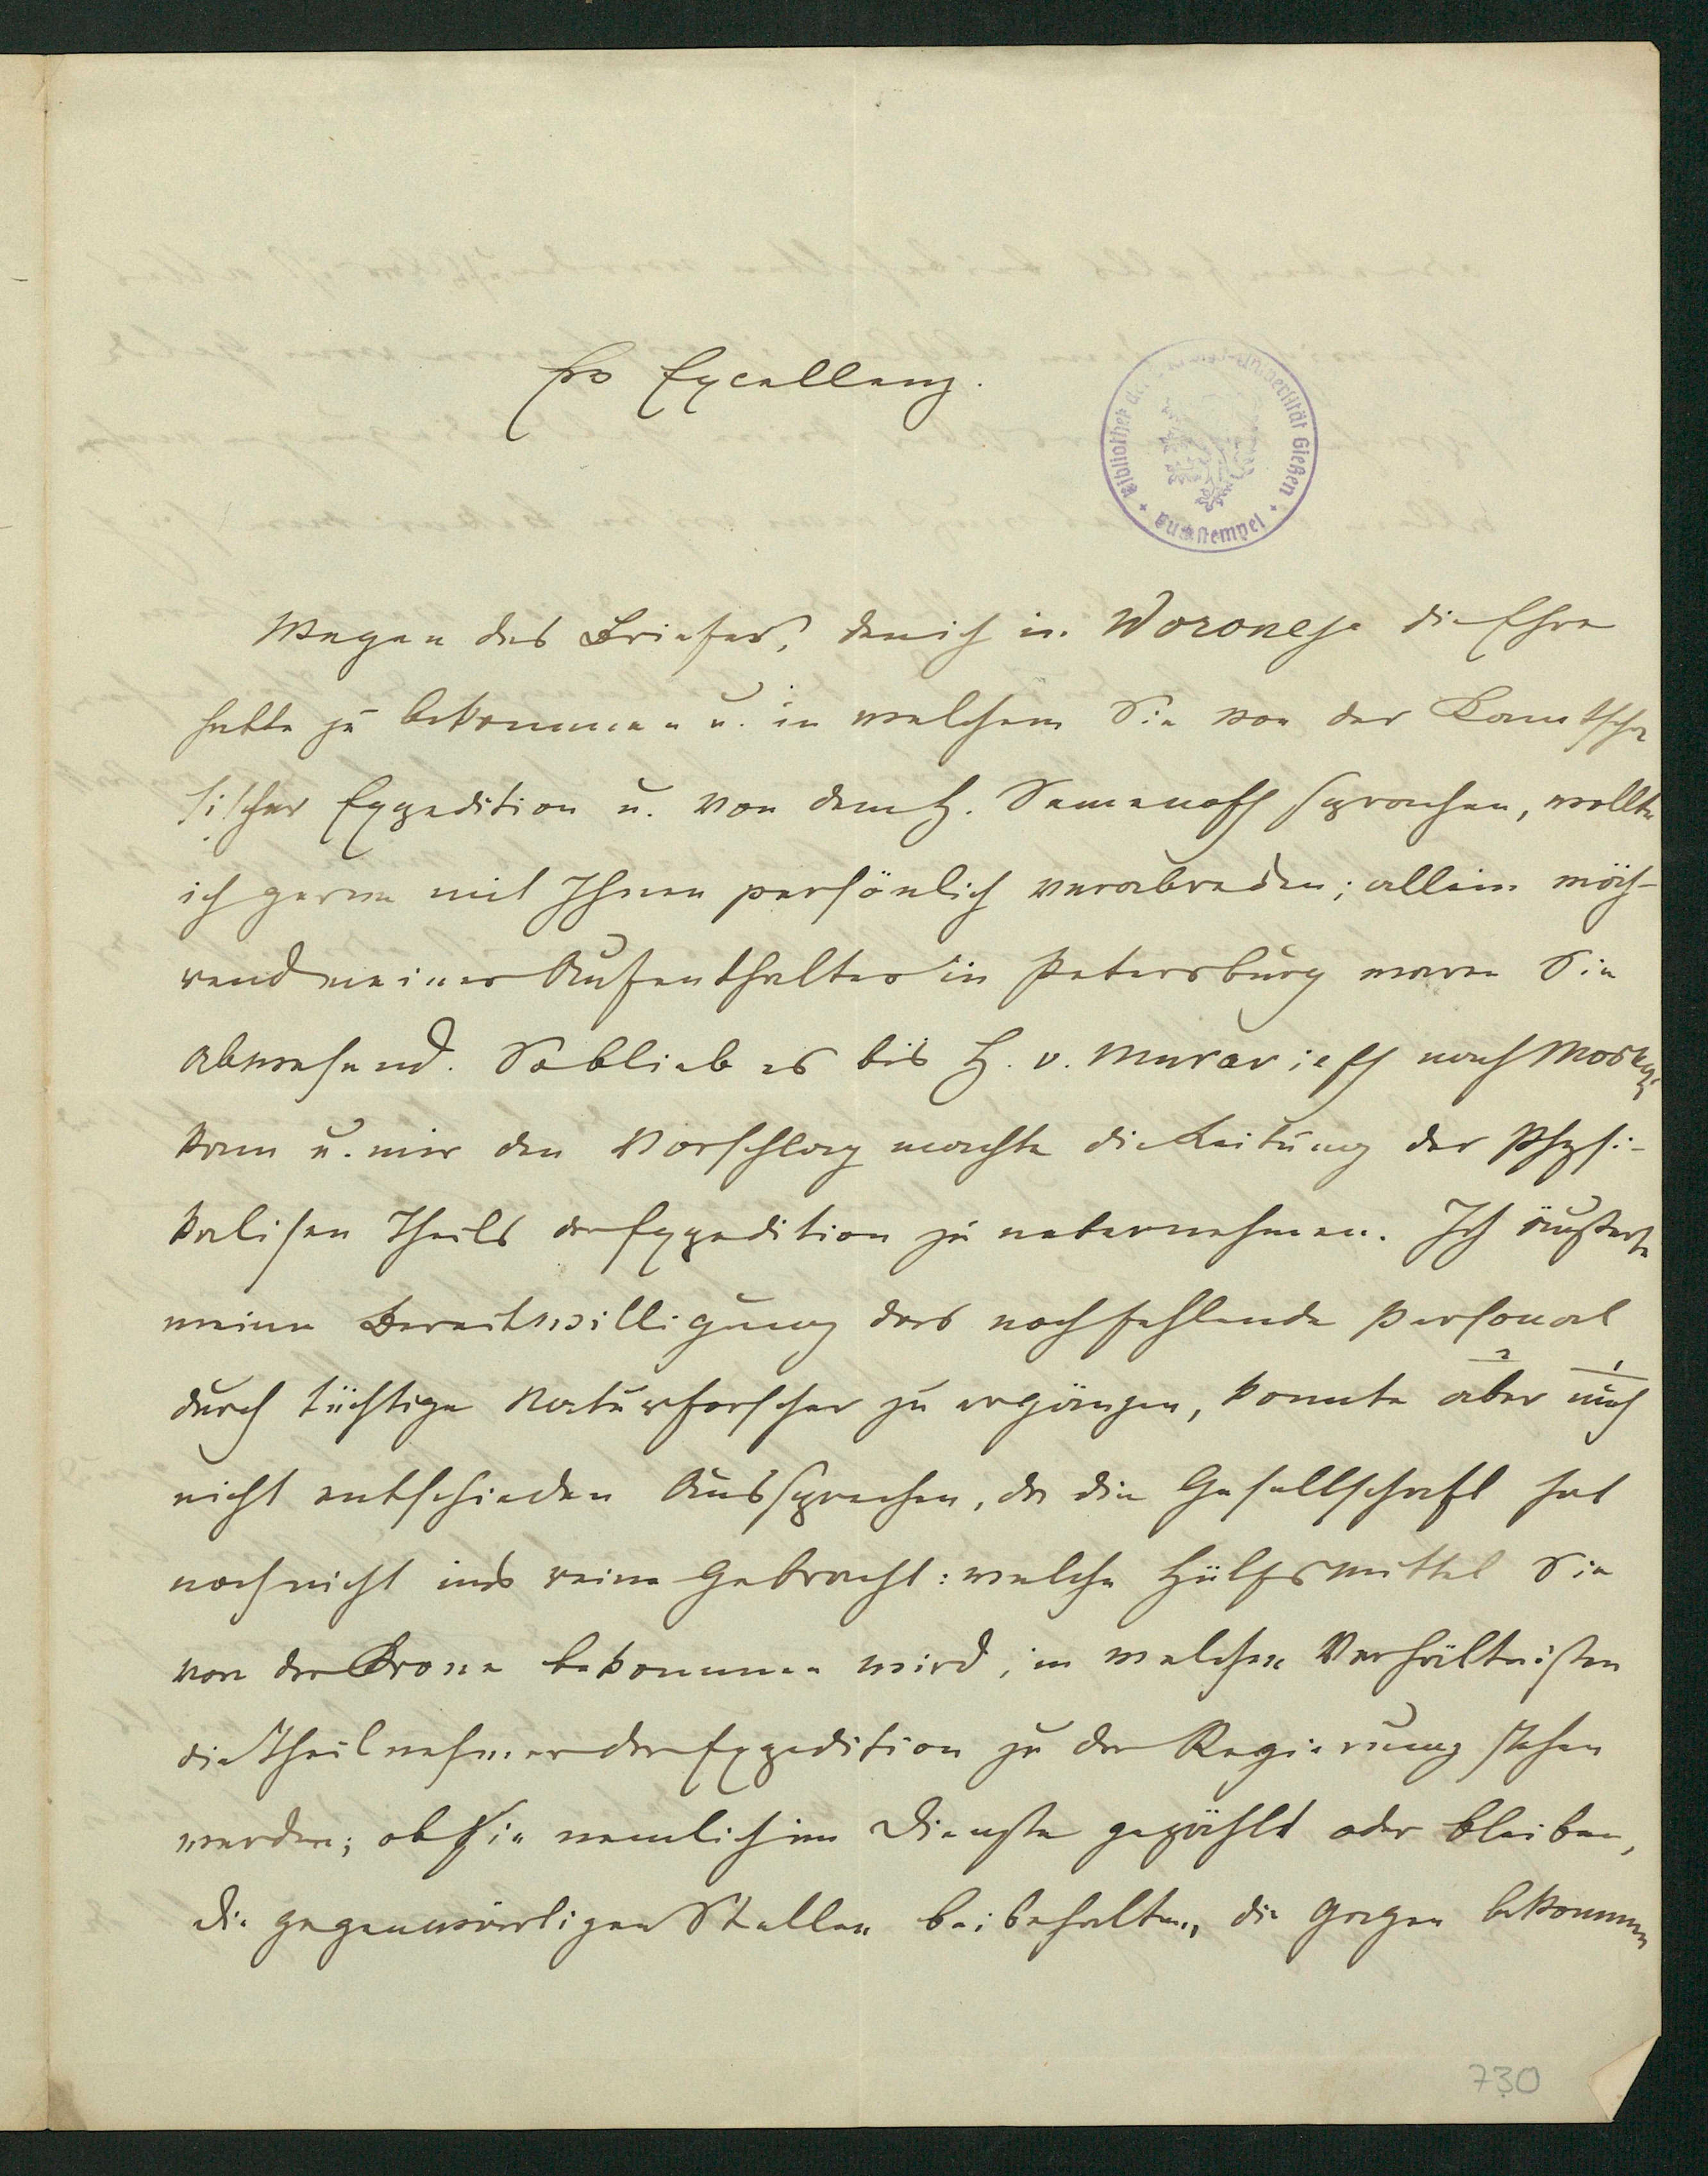 Ew Excellenz.
Bibliothek der Universität Gießen
Buchstempel
Wegen des Briefes, den ich in Woronesh die Ehre
hatte zu bekommen u. in welchem Sie von der Kamtscha
tischer Expedition u. von dem H. Semenoff sprachen, wollte
ich gerne mit Ihnen persönlich verabreden; allein wäh-
rend meines Aufenthaltes in Petersburg waren Sie
abwesend. So blieb es bis H. v. Muravieff nach Moskau
kam u. mir den Vorschlag machte die Leitung der Physi-
kalisen Theils der Expedition zu uebernehmen. Ich äußerte
meine Bereitwilligung das noch fehlende Personal
durch tüchtige Naturforscher zu ergänzen, konnte aber mich
nicht entschieden Aussprechen, da die Gesellschaft hat
noch nicht ins reine Gebracht: welche Hülfsmittel Sie
von der Krone bekommen wird, in welchen Verhältnissen
die Theilnehmer der Expedition zu der Regierung stehen
werden; ob Sie nemlich im Dienste gezählt oder bleiben,
die gegenwärtigen Stellen beibehalten, die Gagen bekommen
730